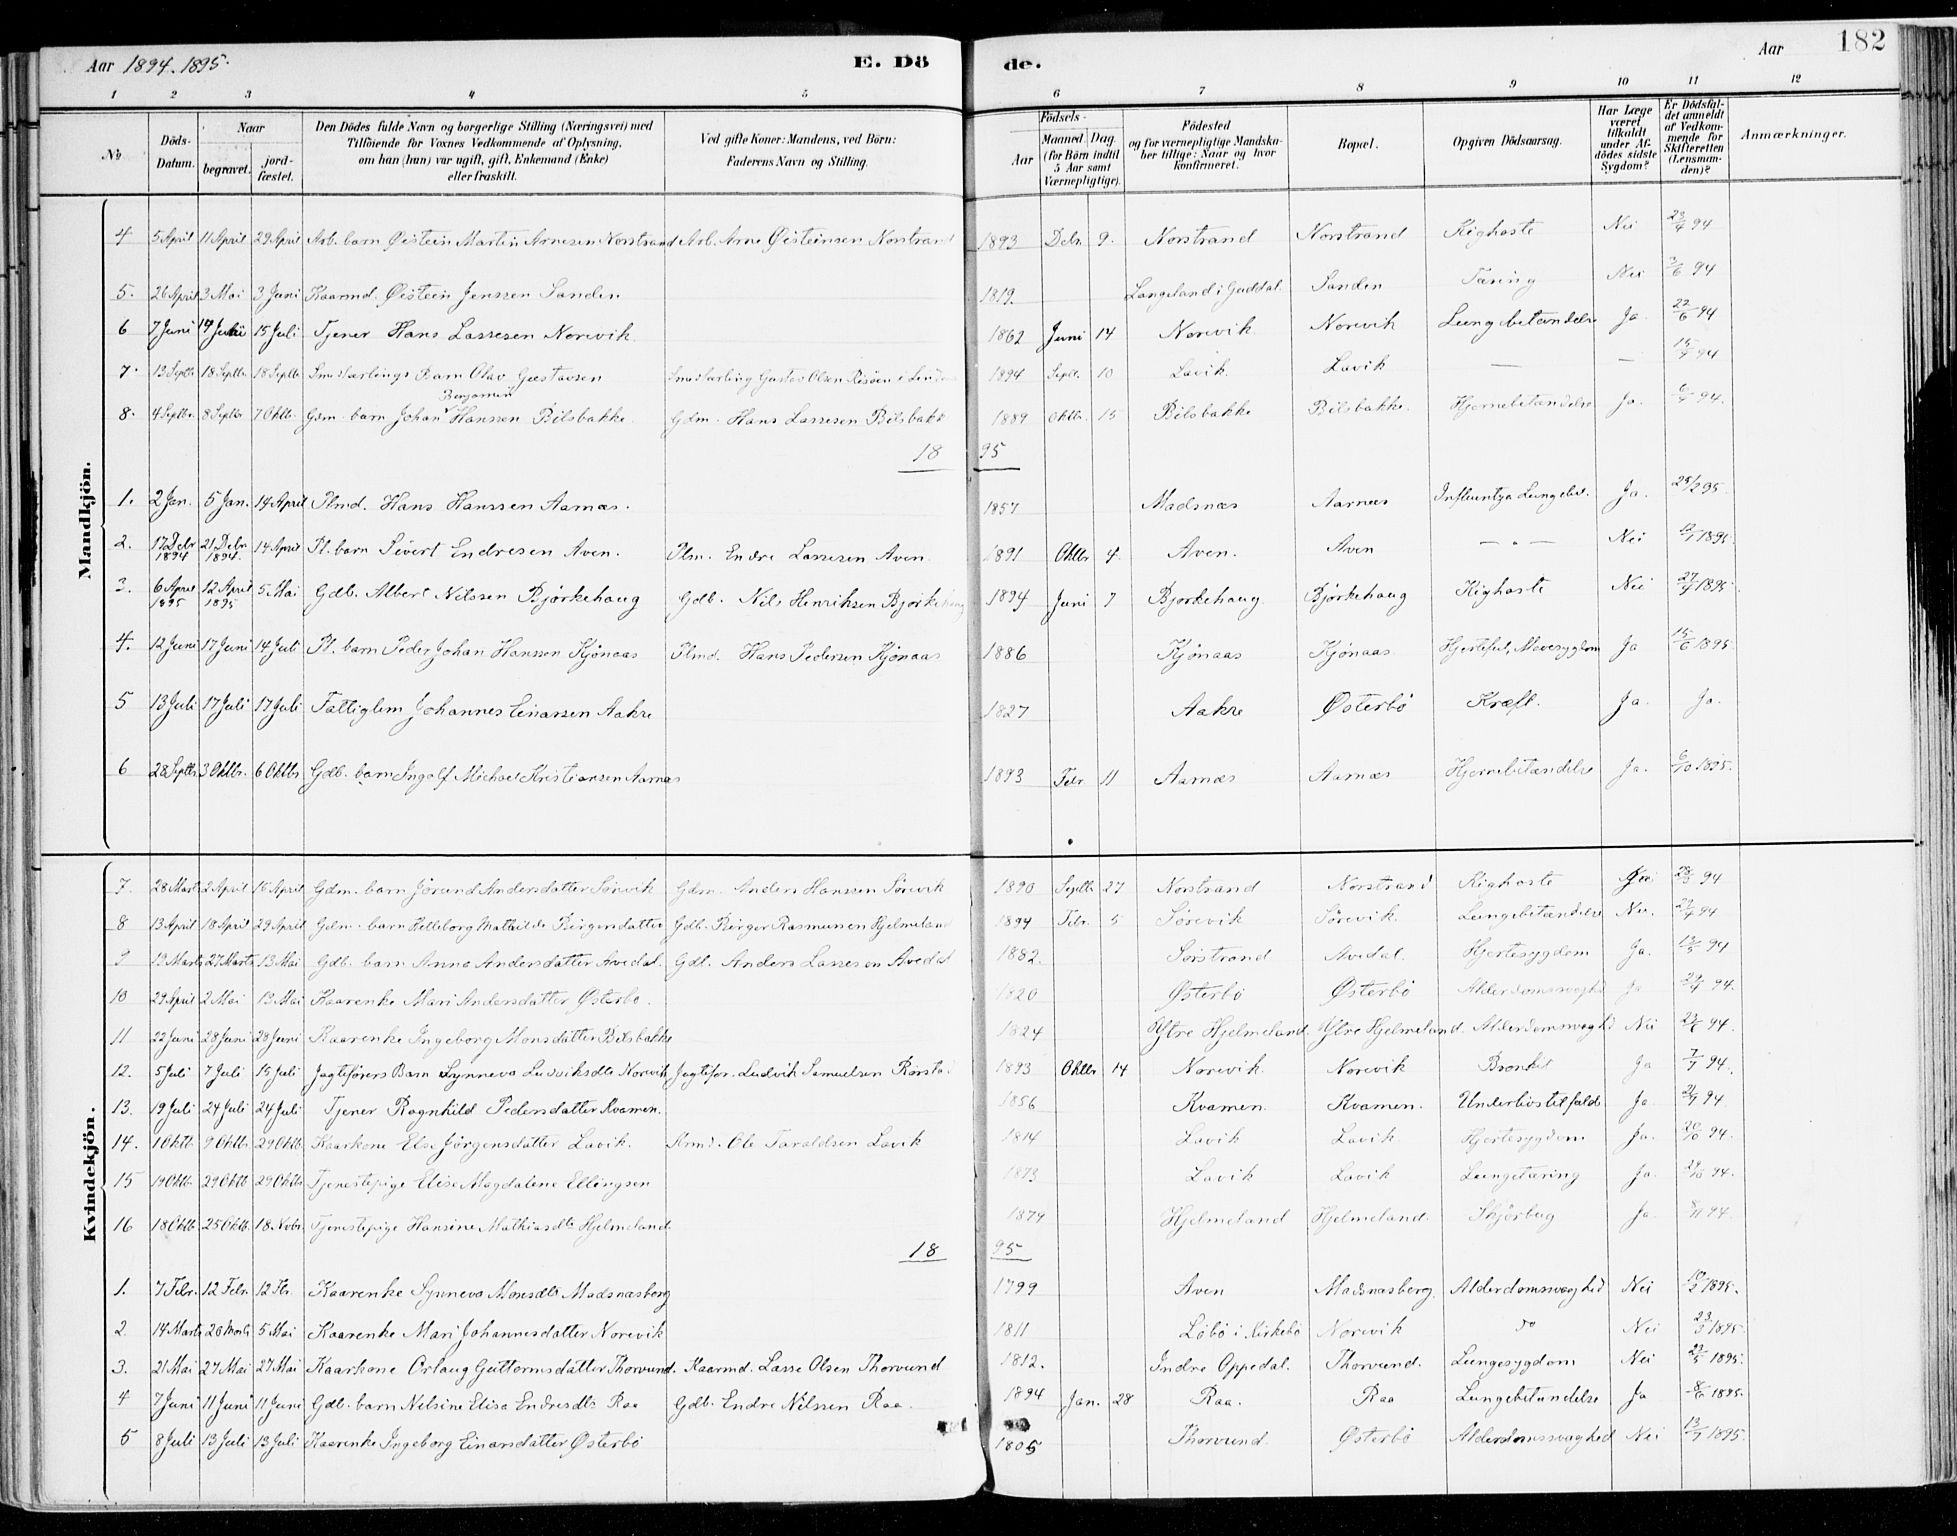 Aar 1894. 1895. E. Dö de. Aar 182
1 2 3 4 5 6 7 8 9 10 11 12
No. Döds-Datum. Naar begravet. jordfæstet. Den Dödes fulde Navn og borgerlige Stilling (Næringsvei) med Tilföiende for Voxnes Vedkommende af Oplysning, om han (hun) var ugift, gift, Enkemand (Enke) eller fraskilt. Ved gifte Koner: Mandens, ved Börn: Faderens Navn og Stilling. Födsels- Aar Maaned. Dag. (for Börn indtil 5 Aar samt Værnepligtige). Födested og for værnepligtige Mandskaber tillige: Naar og hvor konfirmeret. Bopæl. Opgiven Dödsaarsag. Har Læge været tilkaldt under Afdödes sidste Sygdom? Er Dödsfaldet anmeldt af Vedkommende for Skifteretten (Lensmanden)? Anmærkninger.
Mandkjön.
4 5 April 11 April 29 April Arb. barn Øistein Martin Arnesen Norstrand Arb. Arne Øisteinsen Norstrand 1893 Debr. 9. Norstrand Norstrand Kighoste Nei 23/4 94
5. 26 April 3 Mai 3 Juni Kaarmd. Øistein Jenssen Sanden 1819. Langeland i Guddal. Sanden Tæring Nei 3/6 94
6 7 Juni 14 Juni 15 Juli Tjener Hans Lassesen Norevik 1862 Juni 14 Norevik Norevik Lungebetændelse Ja. 22/6 94
7. 13 Septb. 18 Septbr. 18 Septbr. Barn Olav Gustavsen Gustav Olsen 1894 Septbr. 10 Lavik. Lavik — — 15/9 94
8. 4 Septbr. 8 Septbr 7 Oktb. Gdm. barn Johan Benjamin Hanssen Bilsbakke. Gdm. Hans Lassesen Bilsbakk 1889 Oktbr. 15 Bilsbakke Bilsbakke. Hjernebetændelse Ja. 6/9 94.
18 95
1. 2 Jan. 5 Jan. 14 April Plmd. Hans Hanssen Aarnæs. 1857 Madsnæs Aarnæs Influentza Lungebet. Ja. 25/2 95.
2. 17 Debr 1894 21 Debr. 1894. 14 April Pl. barn Sivert Endresen Aven. Plm. Endre Lassesen Aven. 1891 Oktbr 4. Aven. Aven — " — Nei 1895.
3. 6 April 1895 12 April 1895 5 Mai Gdb. Albert Nilssen Bjørkehaug Gdb. Nils Henriksen Bjørkehaug 1894 Juni 7 Bjørkehaug Bjørkehaug Kighoste Nei 27/4 1895.
4. 12 Juni 17 Juni 14 Juli Pl. barn Peder Johan Hanssen Kjønaas Plmd. Hans Pedersen Kjønaas 1886 Kjønaas Kjønaas. Hjertefeil, Mavesygdom Ja 15/6 1895.
5 13 Juli 17 Juli 17 Juli Fattiglem Johannes Einarsen Aakre 1827 Aakre Østerbö Kræft. Ja. Ja.
6 28 Septbr 3 Oktbr. 6 Oktbr Gdb. barn Ingolf Michael Kristiansen Aarnæs 1893 Febr 11 Aarnæs Aarnæs Hjernebetændelse Ja. 6/10 1895.
Kvindekjön.
7. 28 Marts 2 April 15 April Gdm. barn Jörund Andersdatter Sörevik Gdm. Anders Hanssen Sörevik 1890 Septb. 27 Norstrand Norstrand Kighoste Nei 94
8 13 April 18 April 29 April Gdm. barn Helleborg Mathilde Birgersdatter Gdb. Birger Rasmussen Hjelmeland 1894 Febr. 5 Sörevik Sörevik. Lungebetændelse Nei. 22/4 94
9 19 Marts 27 Marts 13 Mai Gdb. barn Anna Andersdatter Avedal. Gdb. Anders Lassesen Avedal 1882. Sörstrand Avedal. Hjertesygdom Ja. 12/5 94
10 29 April 2 Mai 13 Mai Kaarenke Mari Andersdatter Østerbö. 1820 Østerbö Østerbö Alderdomssvaghd Ja 29/4 94.
11 22 Juni 28 Juni 28 Juni Kaarenke Ingeborg Monsdatter Bilsbakke 1824 Ytre Hjelmeland. Ytre Hjelmeland. Alderdomssvaghd Nei 94.
12. 5 Juli 7 Juli 15 Juli Jagtförers Barn Synneva Ludviksdtr Norevik Jagtför. Ludvik Samuelsen Rörstad 1893 Oktbr 14 Norevik. Norevik Bronkit Ja 7/7 94.
13. 19 Juli 24 Juli 24 Juli Tjener Ragnhild Pedersdatter Kvamen. 1856 Kvamen. Kvamen. Underlivstilfælde Ja. 94.
14. 1 Oktb. 9 Oktbr. 29 Oktb. Kaarkone Else Jörgensdatter Lavik. Krmd. Ole Taraldsen Lavik 1814 Lavik. Lavik. Hjertesygdom Ja. 20/10 94.
15 19 Oktb. 29 Oktb 29 Oktbr Tjenestepige Elise Magdalene Ellingsen 1873 Lavik Lavik Lungetæring Ja. 29/10 94.
16 18 Oktb 25 Oktb. 18. Novbr. Tjenestepige Hansine Mathiasdtr Hjelmeland 1874 Hjelmeland Hjelmeland. Skjörbug Ja. 8/11 94.
18 95
1. 7 Febr. 12 Febr. 12 Fbr. Kaarenke Synneva Monsdtr Madsnæsberg 1799 Aven Madsnæsberg. Alderdomssvaghed Nei 10/2 1895.
2. 14 Marts 20 Marts 5 Mai Kaarenke Mari Johannesdatter Norevik 1811 Löbö i Kirkebö Norevik do Nei 23/3 1895.
3. 21 Mai 27 Mai 27 Mai Kaarkone Orlaug Guttormsdatter Thorvund. Kaarmd. Lasse Olsen Thorvund 1812. Indre Oppedal. Thorvund. Lungesygdom Nei 29/5 1895.
4 7 Juni 11 Juni 11 Juni Gdb. barn Nilsine Elisa Endresdtr Raa Gdb. Endre Nilssen Raa. 1894 Jan. 28 Raa. Raa Lungebetændelse Ja 8/6 1895.
5 8 Juli 13 Juli 13 Juli Kaarenke Ingeborg Einarsdatter Østerbö 1805 Thorvund. Østerbö Alderdomssvaghed Nei 13/7 1895.